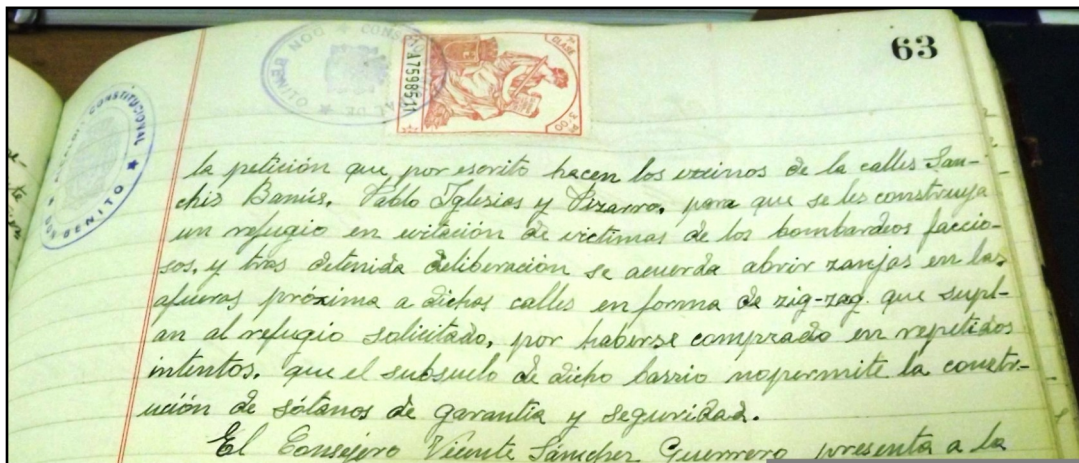 63
CONSTITUCIONAL
DON BENITO
CONS
DON BENITO
7ª CLASE
A7598511
3,00
la petición que por escrito hacen los vecinos de la calles San-
chis Banús, Pablo Iglesias y Pizarro, para que se les construya
un refugio en evitación de victimas de los bombardeos faccio-
sos, y tras detenida deliberación se acuerda abrir zanjas en las
afueras próxima a dichas calles en forma de zig-zag. que supl-
an al refugio solicitado, por haberse comprado en repetidos
intentos, que el subsuelo de dicho barrio nopermite la constr-
ución de sótanos de garantia y seguridad.
El Consejero Vicente Sánchez Guerrero presenta a la